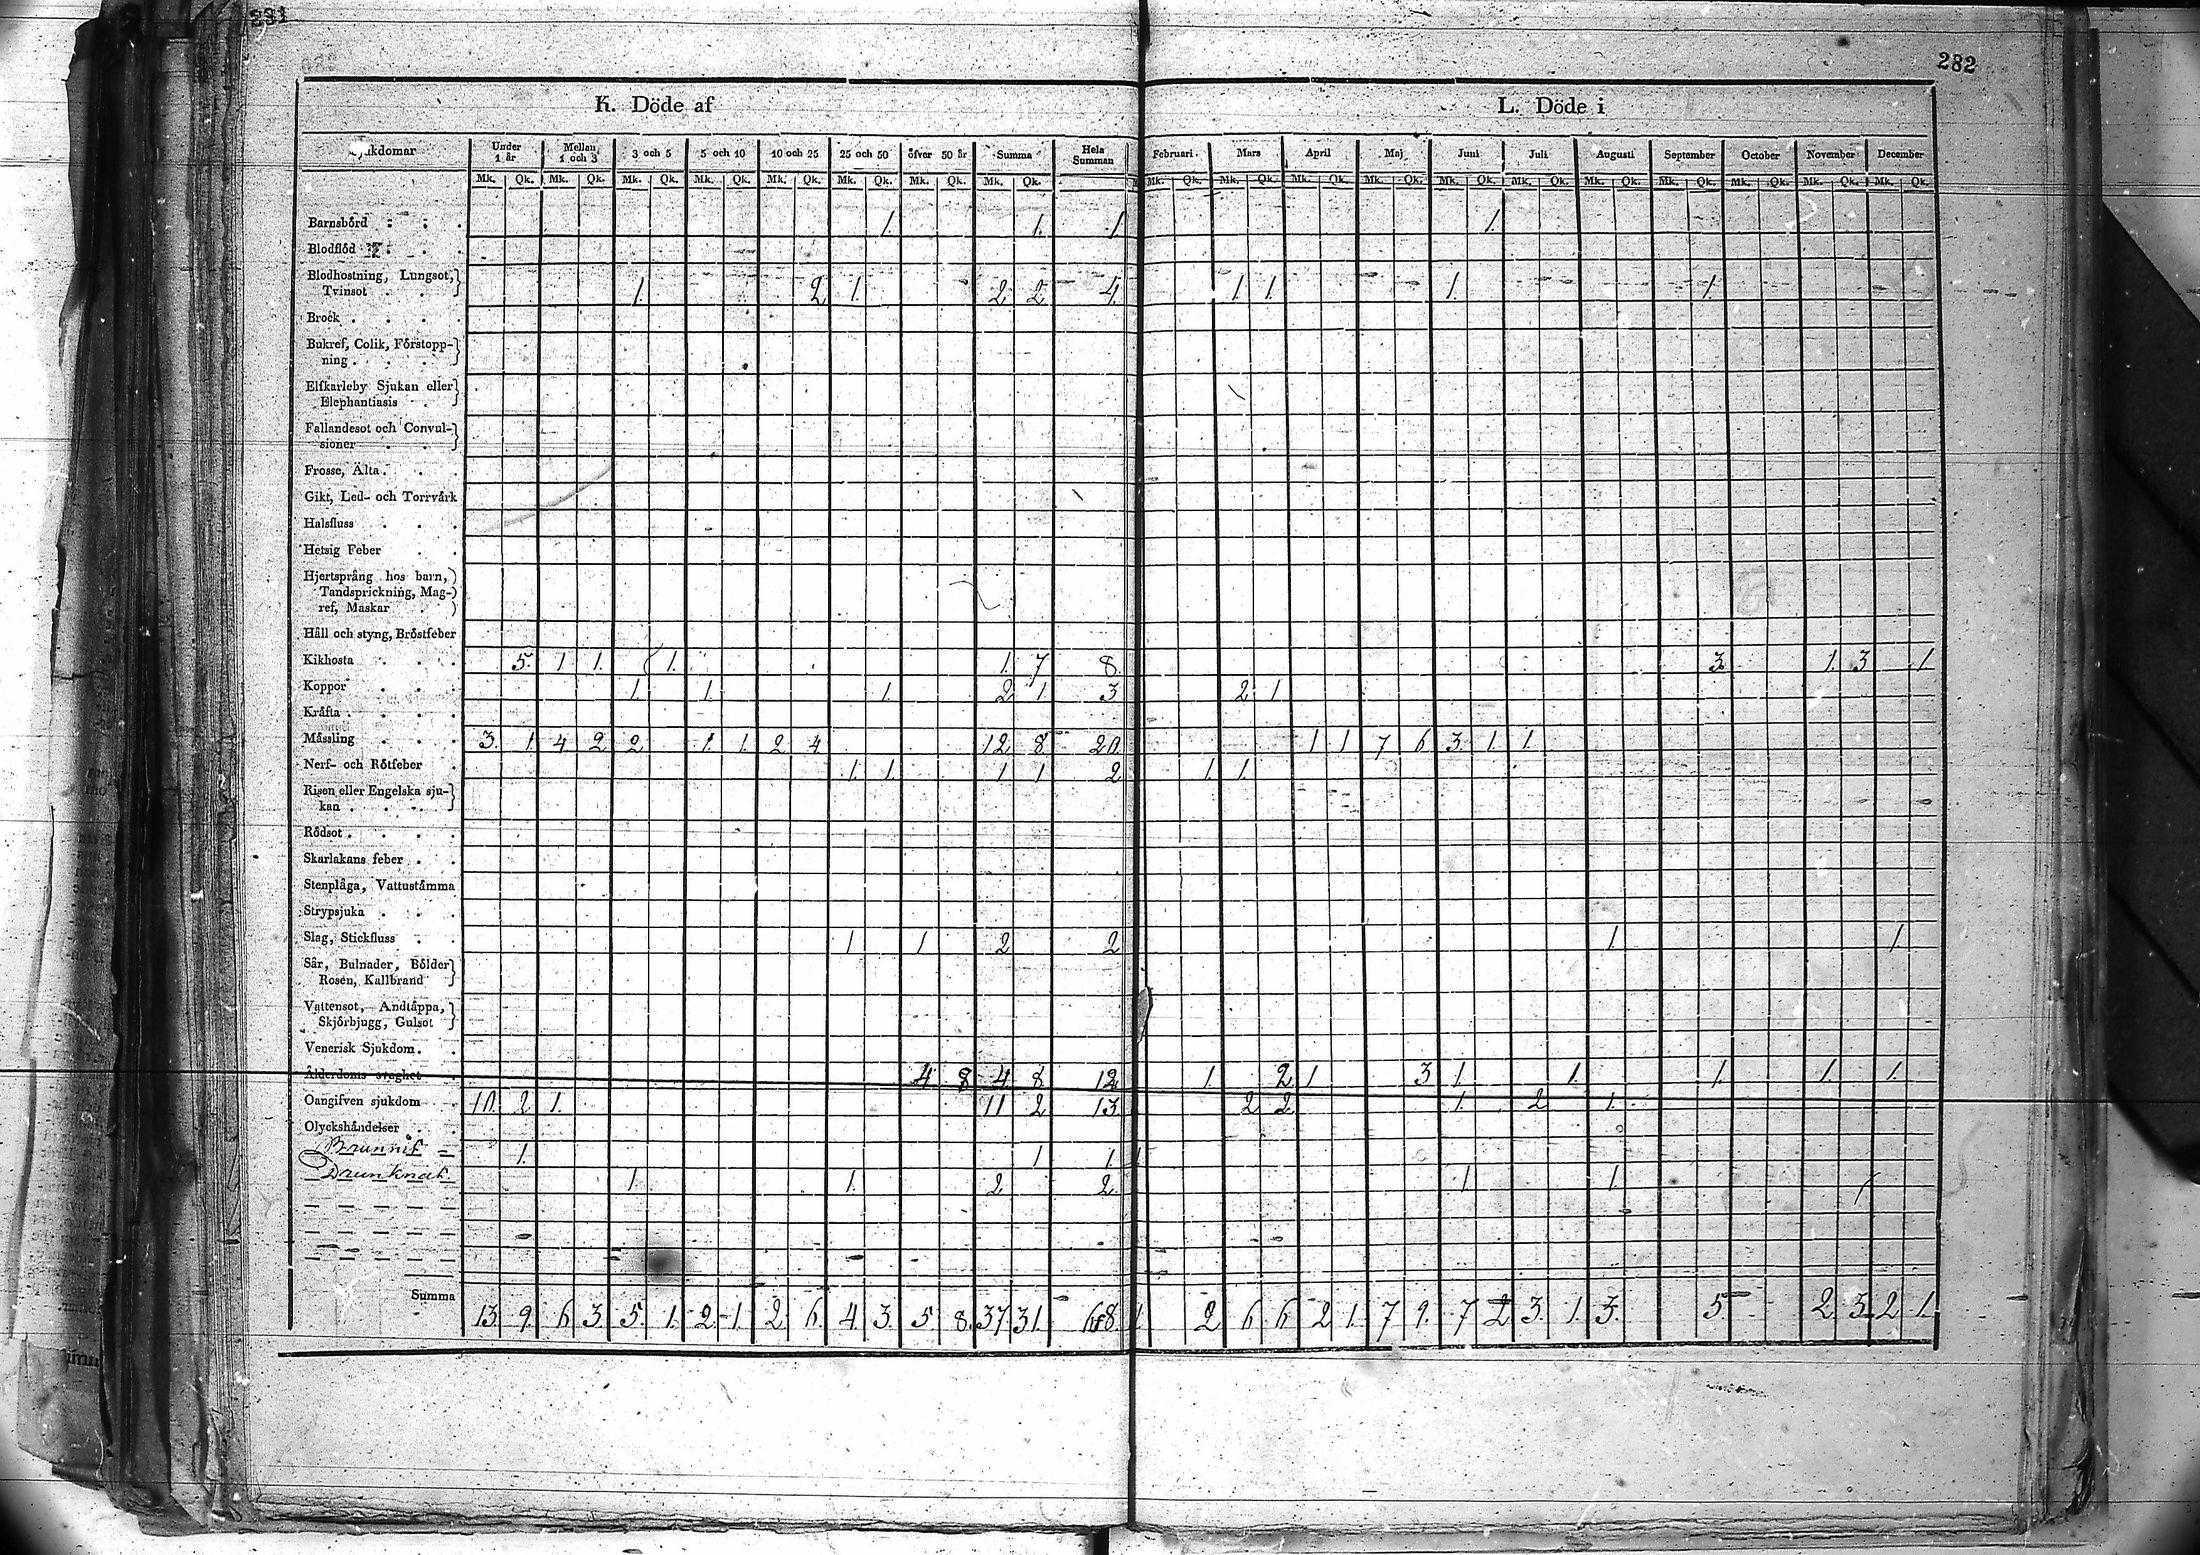 281
282
K. Döde af
L. Döde i
Sjukdomar Under 1 år Mellan 1 och 3 3 och 5 5 och 10 10 och 25 25 och 50 öfver 50 år Summa Hela Summan Februari Mars April Maj Juni Juli Augusti September October November December
Mk. Qk. Mk. Qk. Mk. Qk. Mk. Qk. Mk. Qk. Mk. Qk. Mk. Qk. Mk. Qk. Mk. Qk. Mk. Qk. Mk. Qk. Mk. Qk. Mk. Qk. Mk. Qk. Mk. Qk. Mk. Qk. Mk. Qk. Mk. Qk. Mk. Qk.
Barnsbörd . . . 1. 1. 1 1.
Blodflöd
Blodhostning, Lungsot,
Tvinsot . . 1. 2 1. 2 2 4. 1. 1. 1. 1.
Brock . . . .
Bukref, Colik, Förstopp-
ning . . . .
Elfkarleby Sjukan eller
Elephantiasis .
Fallandesot och Convul-
sioner . . .
Frosse, Älta . . .
Gikt, Led- och Torrvärk
Halsfluss . . .
Hetsig Feber . .
Hjertsprång hos barn,
Tandsprickning, Mag-
ref, Maskar .
Håll och styng, Bröstfeber
Kikhosta . . . . 5. 1 1. 1. 1. 7 8. 3. 1. 3. 1.
Koppor . . . 1. 1. 1. 2 1 3 2 1
Kräfta . . . .
Mässling . . . 3. 1. 4 2 2 1. 1. 2 4. 12 8 20. 1 1 7 6 3. 1. 1.
Nerf- och Rötfeber . 1. 1. 1 1 2 1. 1.
Risen eller Engelska sju-
kan . . . .
Rödsot . . . .
Skarlakans feber . .
Stenplåga, Vattustämma
Strypsjuka . . .
Slag, Stickfluss . . 1. 1 2 2 1. 1.
Sår, Bulnader, Bölder
Rosen, Kallbrand
Vattensot, Andtäppa,
Skjörbjugg, Gulsot
Venerisk Sjukdom . .
Ålderdoms svaghet 4 8 4 8. 12. 1. 2 1 3 1. 1. 1. 1. 1.
Oangifven sjukdom . 10. 2 1. 11 2 13. 2 2 1. 2 1.
Olyckshändelser . .
Brunnit 1. 1 1. 1
Drunknat. 1. 1. 2. 2. 1 1.
Summa 13. 9. 6 3. 5. 1. 2. 1. 2. 6. 4. 3. 5 8. 37. 31. 68. 1. 2 6 6 2 1. 7 9. 7 2 3. 1. 3. 5. 2 3. 2 1.